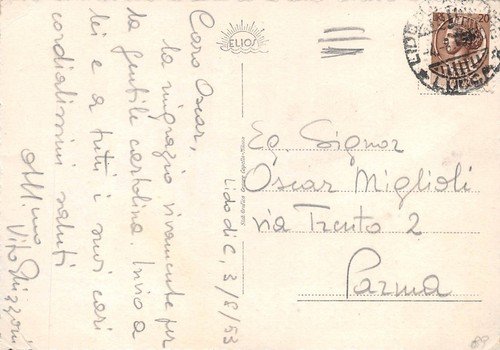 Caro Oscar,
la ringrazio vivamente per
la gentile cartolina. Invio a
lei e a tutti i suoi cari
cordialissimi saluti
Aff.mo
Vito
Lido di C, 3/8/53
ELIOS
20
LIDO
Eg. Signor
Oscar Miglioli
via Trento 2
Parma